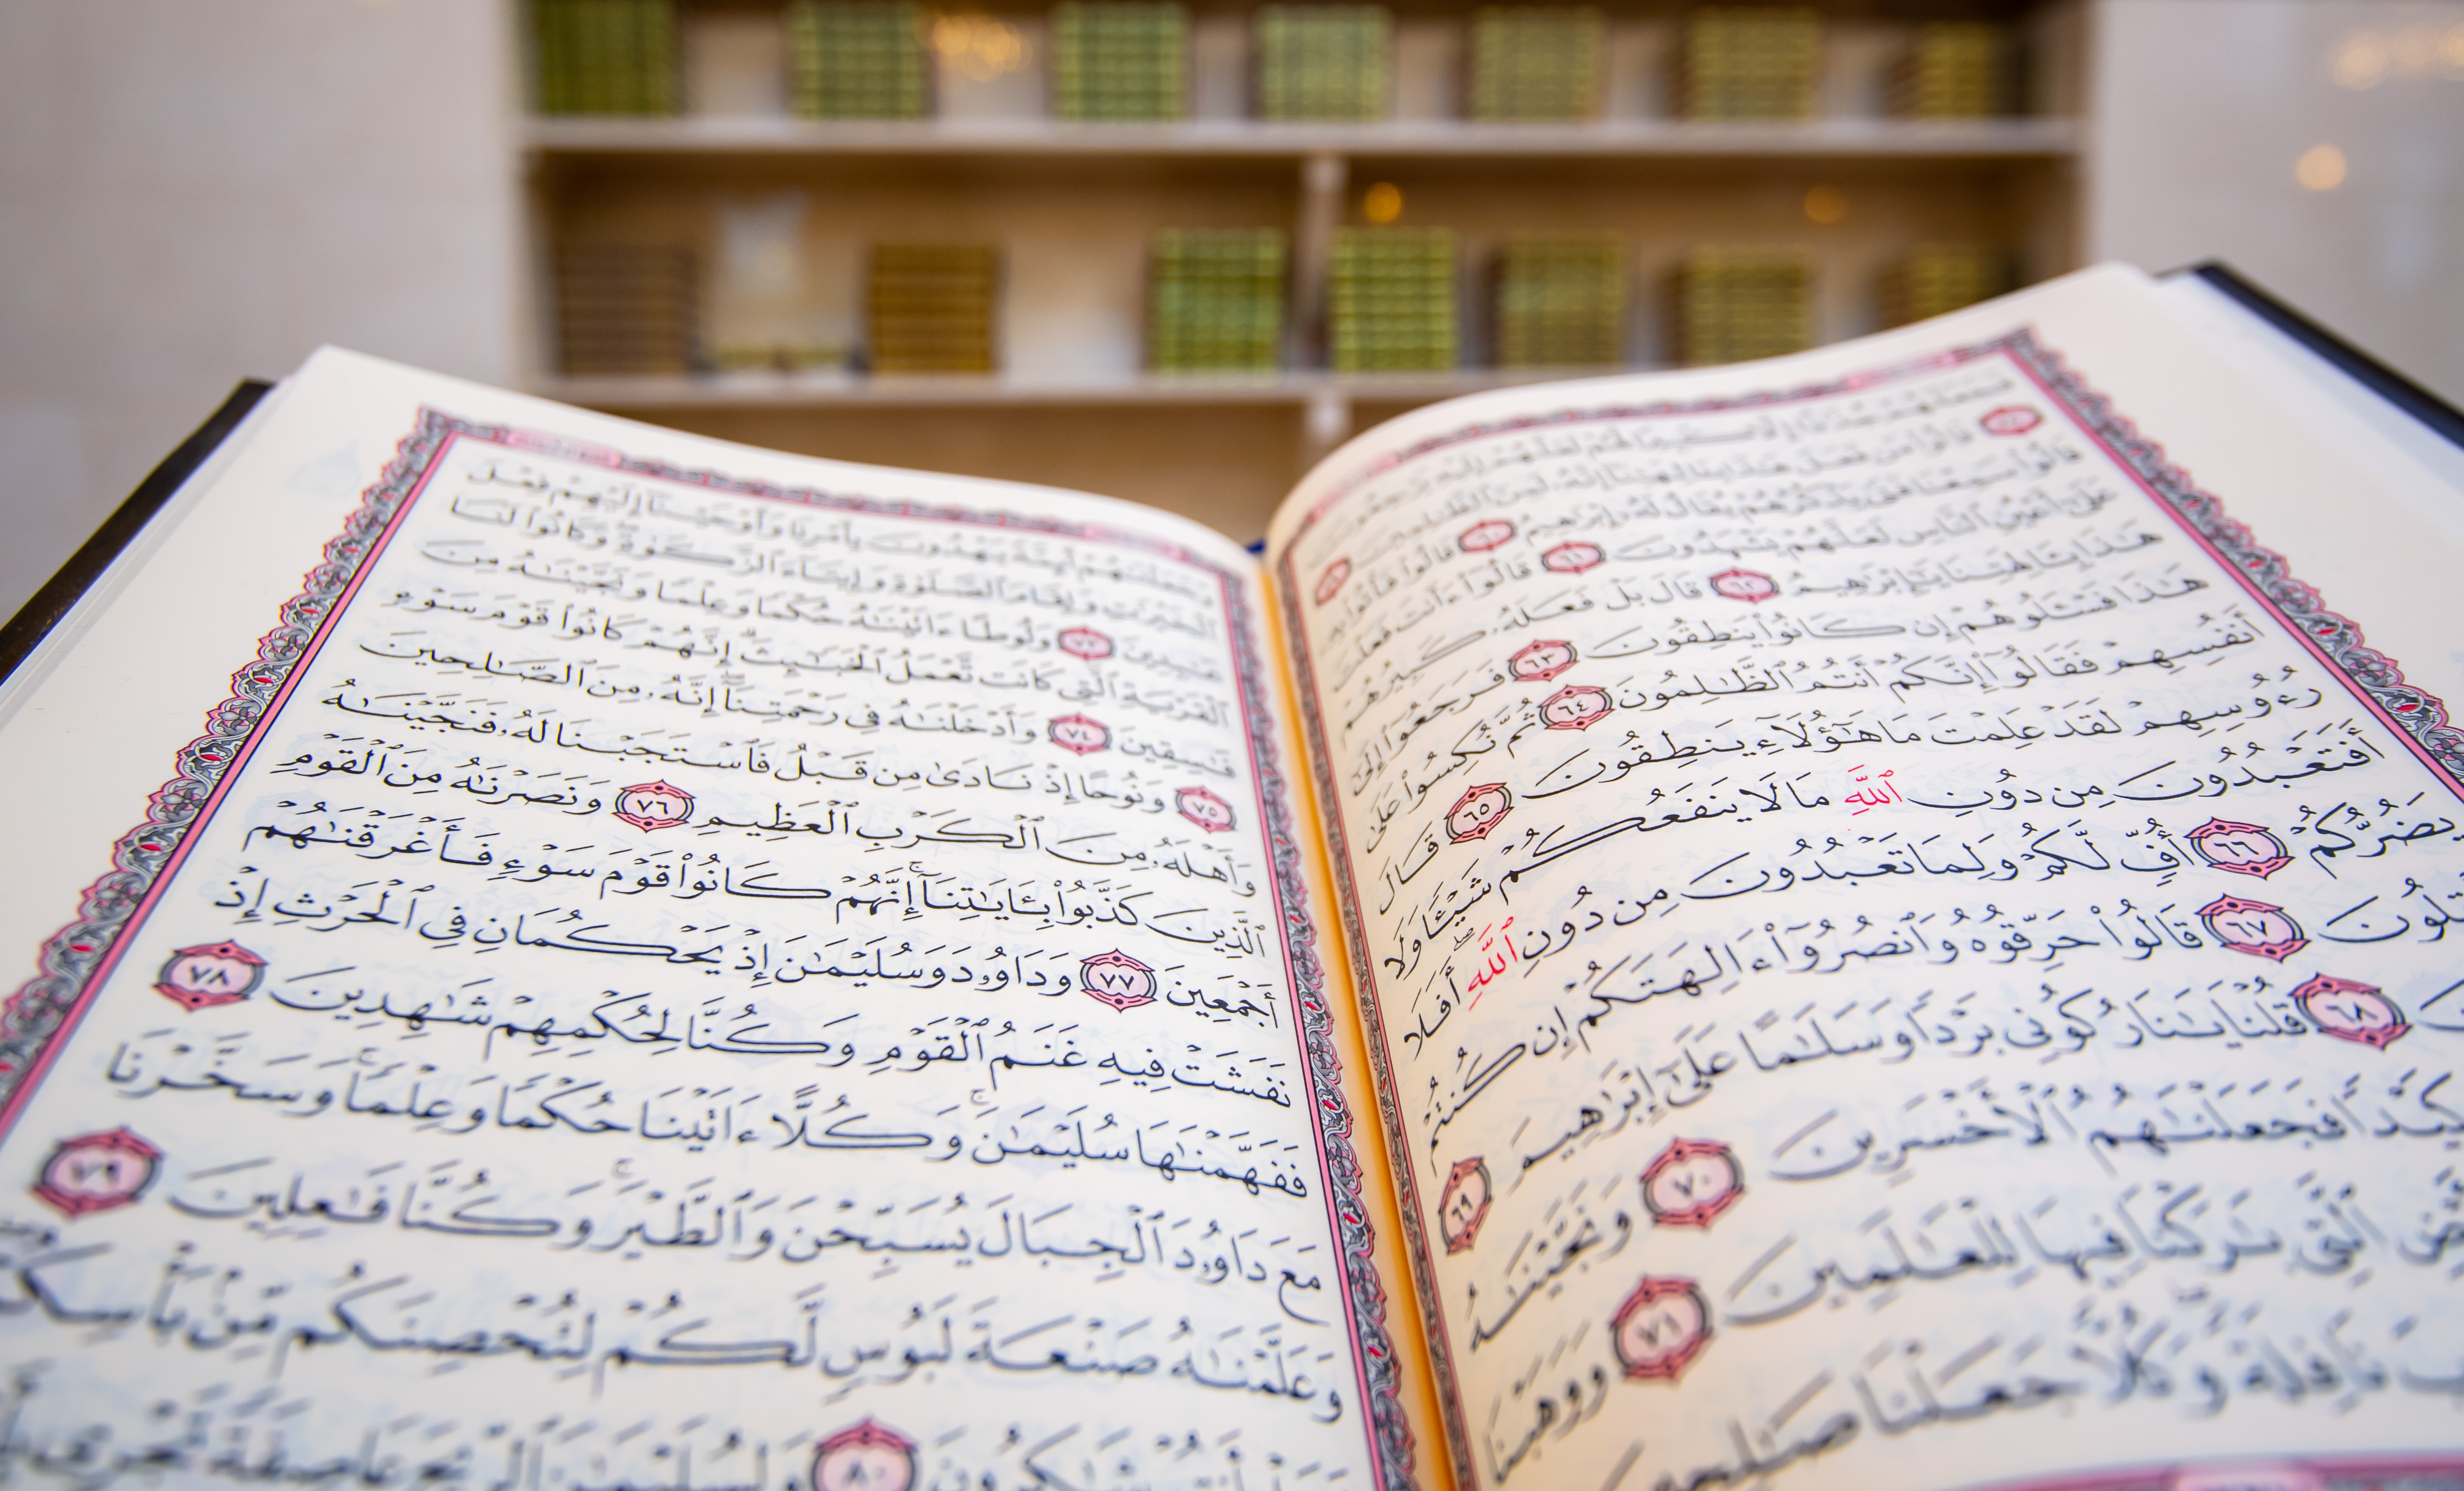 فَجَعَلَهُمْ جُذَٰذًا إِلَّا كَبِيرًا لَّهُمْ لَعَلَّهُمْ إِلَيْهِ يَرْجِعُونَ
قَالُوا۟ مَن فَعَلَ هَٰذَا بِـَٔالِهَتِنَآ إِنَّهُۥ لَمِنَ ٱلظَّٰلِمِينَ
قَالُوا۟ سَمِعْنَا فَتًى يَذْكُرُهُمْ يُقَالُ لَهُۥٓ إِبْرَٰهِيمُ قَالُوا۟ فَأْتُوا۟ بِهِۦ
عَلَىٰٓ أَعْيُنِ ٱلنَّاسِ لَعَلَّهُمْ يَشْهَدُونَ قَالُوٓا۟ ءَأَنتَ فَعَلْتَ
هَٰذَا بِـَٔالِهَتِنَا يَٰٓإِبْرَٰهِيمُ ٦٢ قَالَ بَلْ فَعَلَهُۥ كَبِيرُهُمْ
هَٰذَا فَسْـَٔلُوهُمْ إِن كَانُوا۟ يَنطِقُونَ ٦٣ فَرَجَعُوٓا۟ إِلَىٰٓ
أَنفُسِهِمْ فَقَالُوٓا۟ إِنَّكُمْ أَنتُمُ ٱلظَّٰلِمُونَ ٦٤ ثُمَّ نُكِسُوا۟ عَلَىٰ
رُءُوسِهِمْ لَقَدْ عَلِمْتَ مَا هَٰٓؤُلَآءِ يَنطِقُونَ ٦٥ قَالَ
أَفَتَعْبُدُونَ مِن دُونِ ٱللَّهِ مَا لَا يَنفَعُكُمْ شَيْـًٔا وَلَا
يَضُرُّكُمْ ٦٦ أُفٍّ لَّكُمْ وَلِمَا تَعْبُدُونَ مِن دُونِ ٱللَّهِ ۖ أَفَلَا
٦٧ قَالُوا۟ حَرِّقُوهُ وَٱنصُرُوٓا۟ ءَالِهَتَكُمْ إِن كُنتُمْ
٦٨ قُلْنَا يَٰنَارُ كُونِى بَرْدًا وَسَلَٰمًا عَلَىٰٓ إِبْرَٰهِيمَ ٦٩
كَيْدًا فَجَعَلْنَٰهُمُ ٱلْأَخْسَرِينَ ٧٠ وَنَجَّيْنَٰهُ
ٱلَّتِى بَٰرَكْنَا فِيهَا لِلْعَٰلَمِينَ ٧١ وَوَهَبْنَا
نَافِلَةً ۖ وَكُلًّا جَعَلْنَا صَٰلِحِينَ
وَجَعَلْنَٰهُمْ أَئِمَّةً يَهْدُونَ بِأَمْرِنَا وَأَوْحَيْنَآ إِلَيْهِمْ فِعْلَ
ٱلْخَيْرَٰتِ وَإِقَامَ ٱلصَّلَوٰةِ وَإِيتَآءَ ٱلزَّكَوٰةِ ۖ وَكَانُوا۟ لَنَا
عَٰبِدِينَ ٧٣ وَلُوطًا ءَاتَيْنَٰهُ حُكْمًا وَعِلْمًا وَنَجَّيْنَٰهُ مِنَ
ٱلْقَرْيَةِ ٱلَّتِى كَانَت تَّعْمَلُ ٱلْخَبَٰٓئِثَ ۗ إِنَّهُمْ كَانُوا۟ قَوْمَ سَوْءٍ
فَٰسِقِينَ ٧٤ وَأَدْخَلْنَٰهُ فِى رَحْمَتِنَآ ۖ إِنَّهُۥ مِنَ ٱلصَّٰلِحِينَ
٧٥ وَنُوحًا إِذْ نَادَىٰ مِن قَبْلُ فَٱسْتَجَبْنَا لَهُۥ فَنَجَّيْنَٰهُ
وَأَهْلَهُۥ مِنَ ٱلْكَرْبِ ٱلْعَظِيمِ ٧٦ وَنَصَرْنَٰهُ مِنَ ٱلْقَوْمِ
ٱلَّذِينَ كَذَّبُوا۟ بِـَٔايَٰتِنَآ ۚ إِنَّهُمْ كَانُوا۟ قَوْمَ سَوْءٍ فَأَغْرَقْنَٰهُمْ
أَجْمَعِينَ ٧٧ وَدَاوُۥدَ وَسُلَيْمَٰنَ إِذْ يَحْكُمَانِ فِى ٱلْحَرْثِ إِذْ
نَفَشَتْ فِيهِ غَنَمُ ٱلْقَوْمِ وَكُنَّا لِحُكْمِهِمْ شَٰهِدِينَ ٧٨
فَفَهَّمْنَٰهَا سُلَيْمَٰنَ ۚ وَكُلًّا ءَاتَيْنَا حُكْمًا وَعِلْمًا ۚ وَسَخَّرْنَا
مَعَ دَاوُۥدَ ٱلْجِبَالَ يُسَبِّحْنَ وَٱلطَّيْرَ ۚ وَكُنَّا فَٰعِلِينَ ٧٩
وَعَلَّمْنَٰهُ صَنْعَةَ لَبُوسٍ لَّكُمْ لِتُحْصِنَكُم مِّنۢ بَأْسِكُمْ
أَنتُمْ شَٰكِرُونَ ٨٠ وَلِسُلَيْمَٰنَ ٱلرِّيحَ عَاصِفَةً تَجْرِى